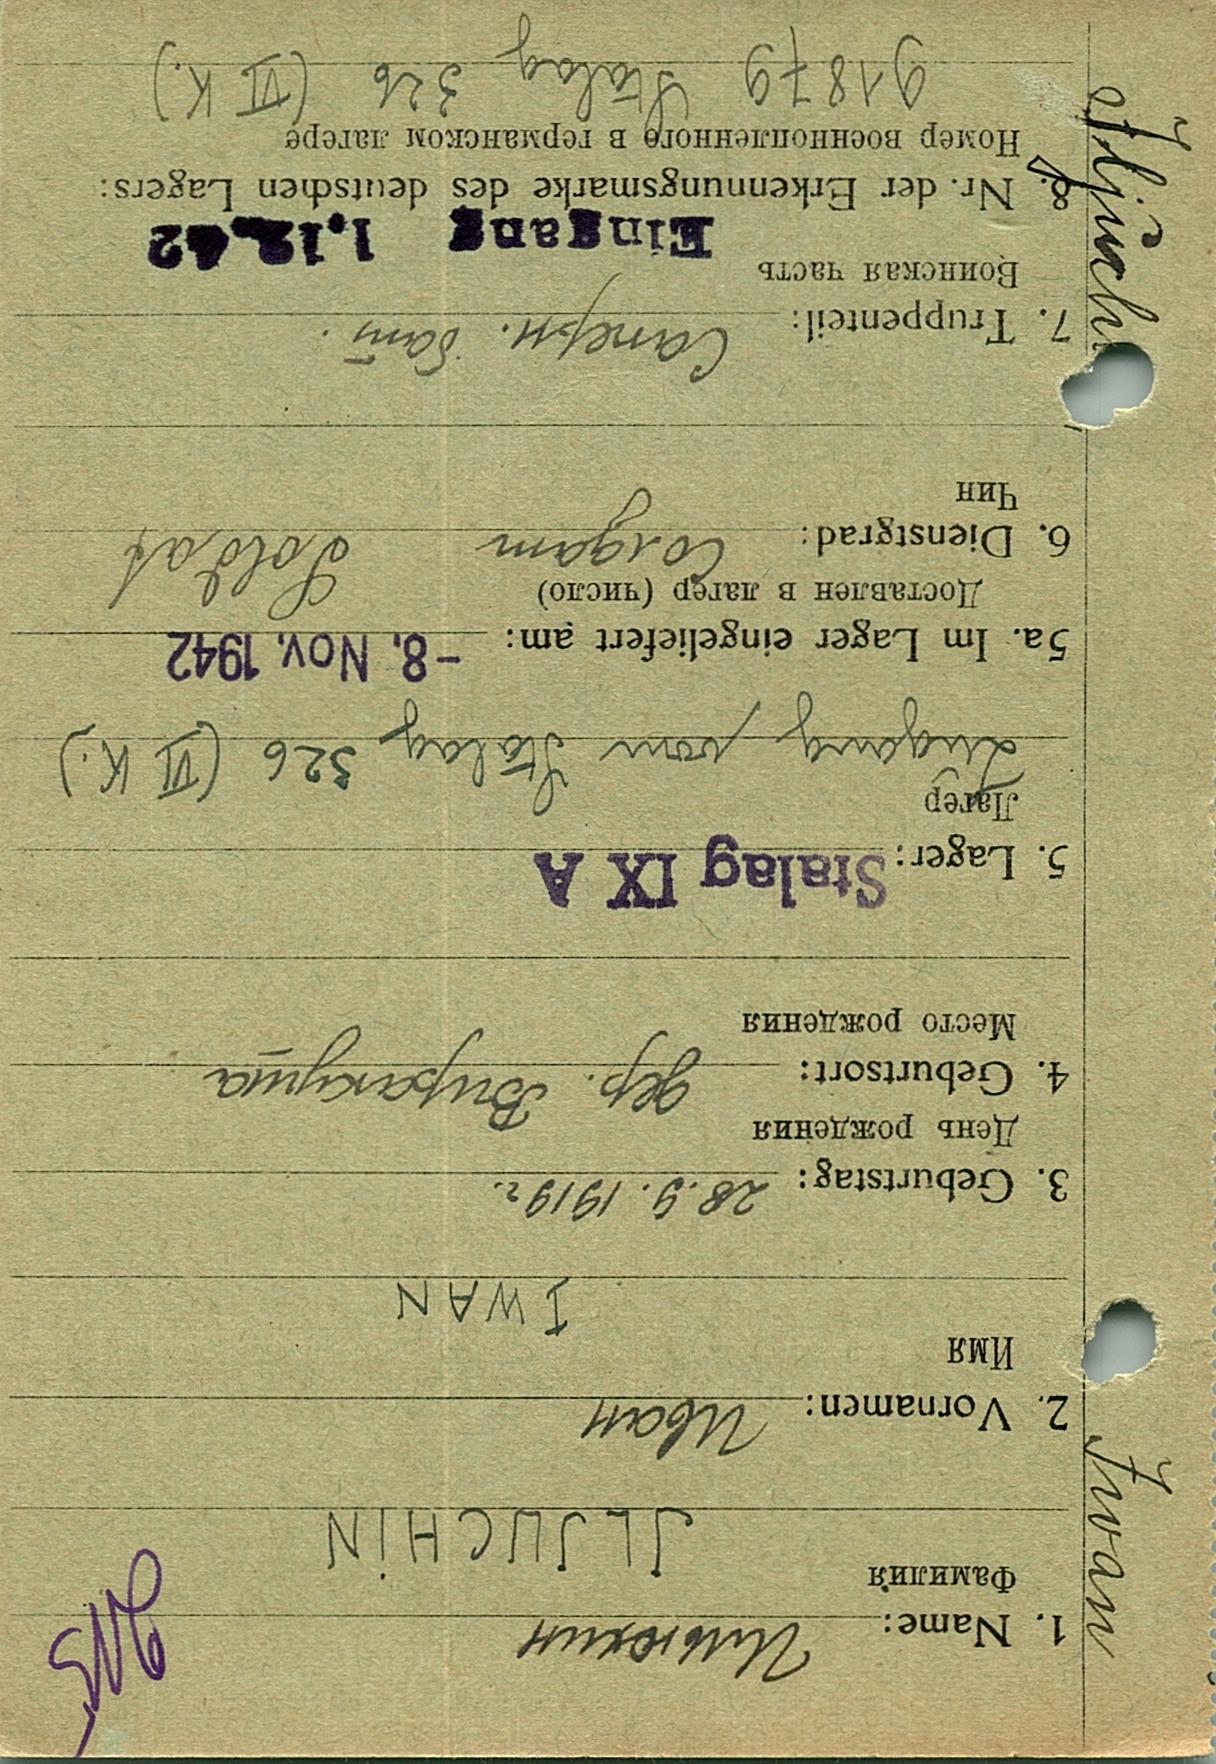 1. Name: Ильюхин
Фамилия
JLJUCHIN
2. Vornamen: Иван
Имя
IWAN
3. Geburtstag: 28.9.1919г.
День рождения
4. Geburtsort: дер.
Место рождения
5. Lager: Stalag IX A
Лагер
Zugang vom Stalag 326 (VI K.)
5a. Im Lager eingeliefert am: -8. Nov. 1942
Доставлен в лагер (число)
6. Dienstgrad: Солдат Soldat
Чин
7. Truppenteil: Саперн. бат.
Воинская часть
Eingang 1.12.42
8. Nr. der Erkennungsmarke des deutschen Lagers:
Номер военнопленного в германском лагере
91879 Stalag 326 (VI K.)
Iljuchin
Iwan